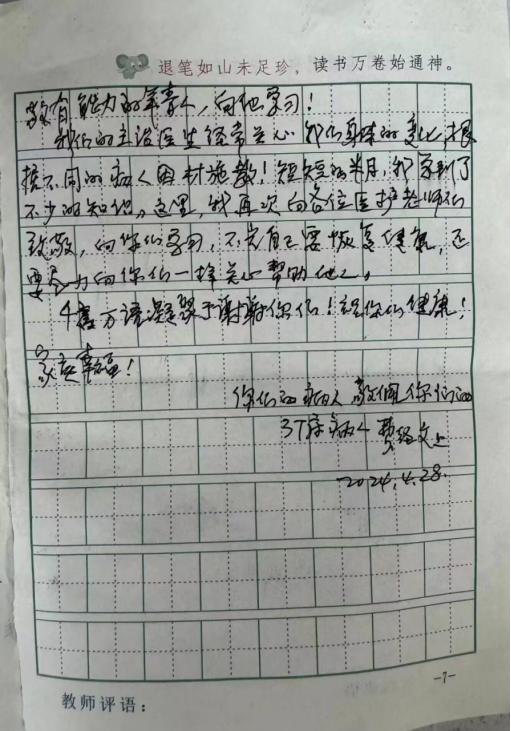 退笔如山未足珍，读书万卷始通神。
敬有能力的年青人，向他学习！
我们的主治医生经常关心我们身体的变化，根
据不同的病人因材施教！短短的半月，我学到了
不少的知识。这里，我再次向各位医护老师们
致敬，向你们学习，不光自己要恢复健康，还
要尽力向你们一样关心帮助他人。
千言万语凝聚于谢谢你们！祝你们健康！
家庭幸福！
你们的病人 敬佩你们的
37床病人 费经文上
2024.4.28.
-7-
教师评语：